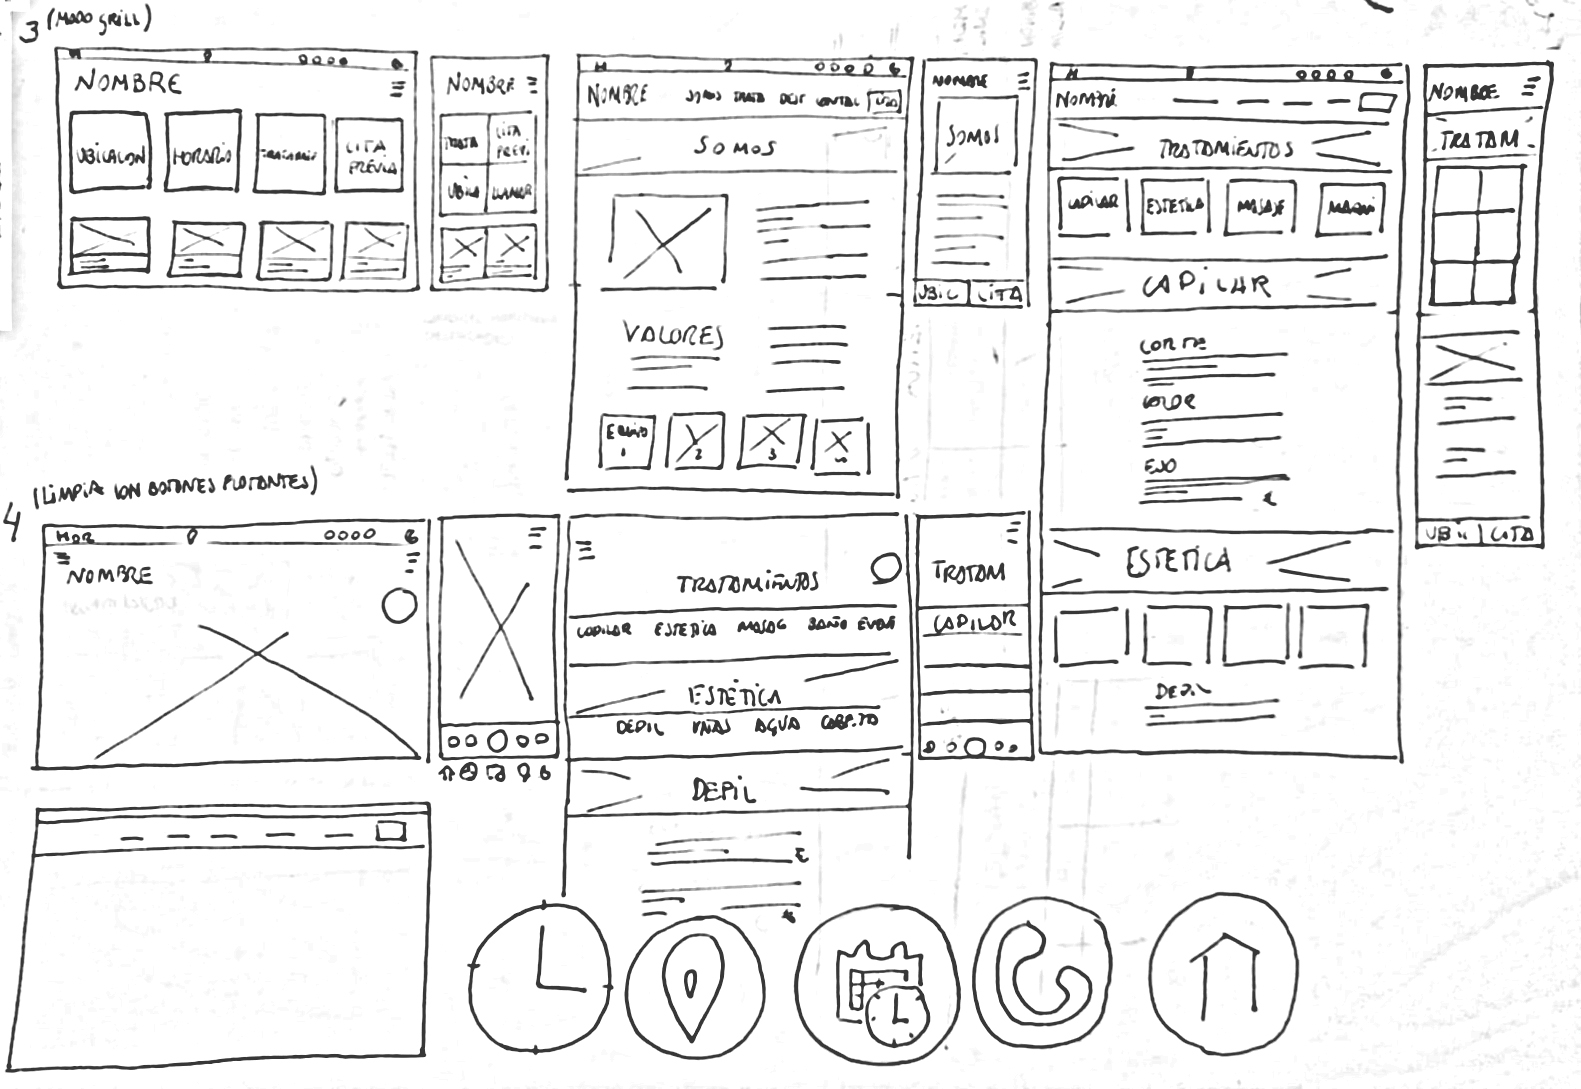 3 (MODO GRILL)
NOMBRE
UBICACION
HORARIO
CITA
PREVIA
NOMBRE
TRATA
CITA
PREVI
UBICA
LLAMAR
H
NOMBRE
SOMOS TRATA DEST CONTAC
SOMOS
VALORES
EQUIPO
1
2
3
NOMBRE
SOMOS
UBIC
CITA
H
NOMBRE
TRATAMIENTOS
CAPILAR
ESTETICA
MASAJE
MAQUI
CAPILAR
CORTE
COLOR
€
ESTETICA
DEPIL
NOMBRE
TRATAM
UBIC
CITA
4 (LIMPIA CON BOTONES FLOTANTES)
HOR
NOMBRE
TRATAMIENTOS
CAPILAR ESTETICA MASAG BAÑO EVENT
ESTÉTICA
DEPIL UÑAS AGUA
DEPIL
€
TRATAM
CAPILAR